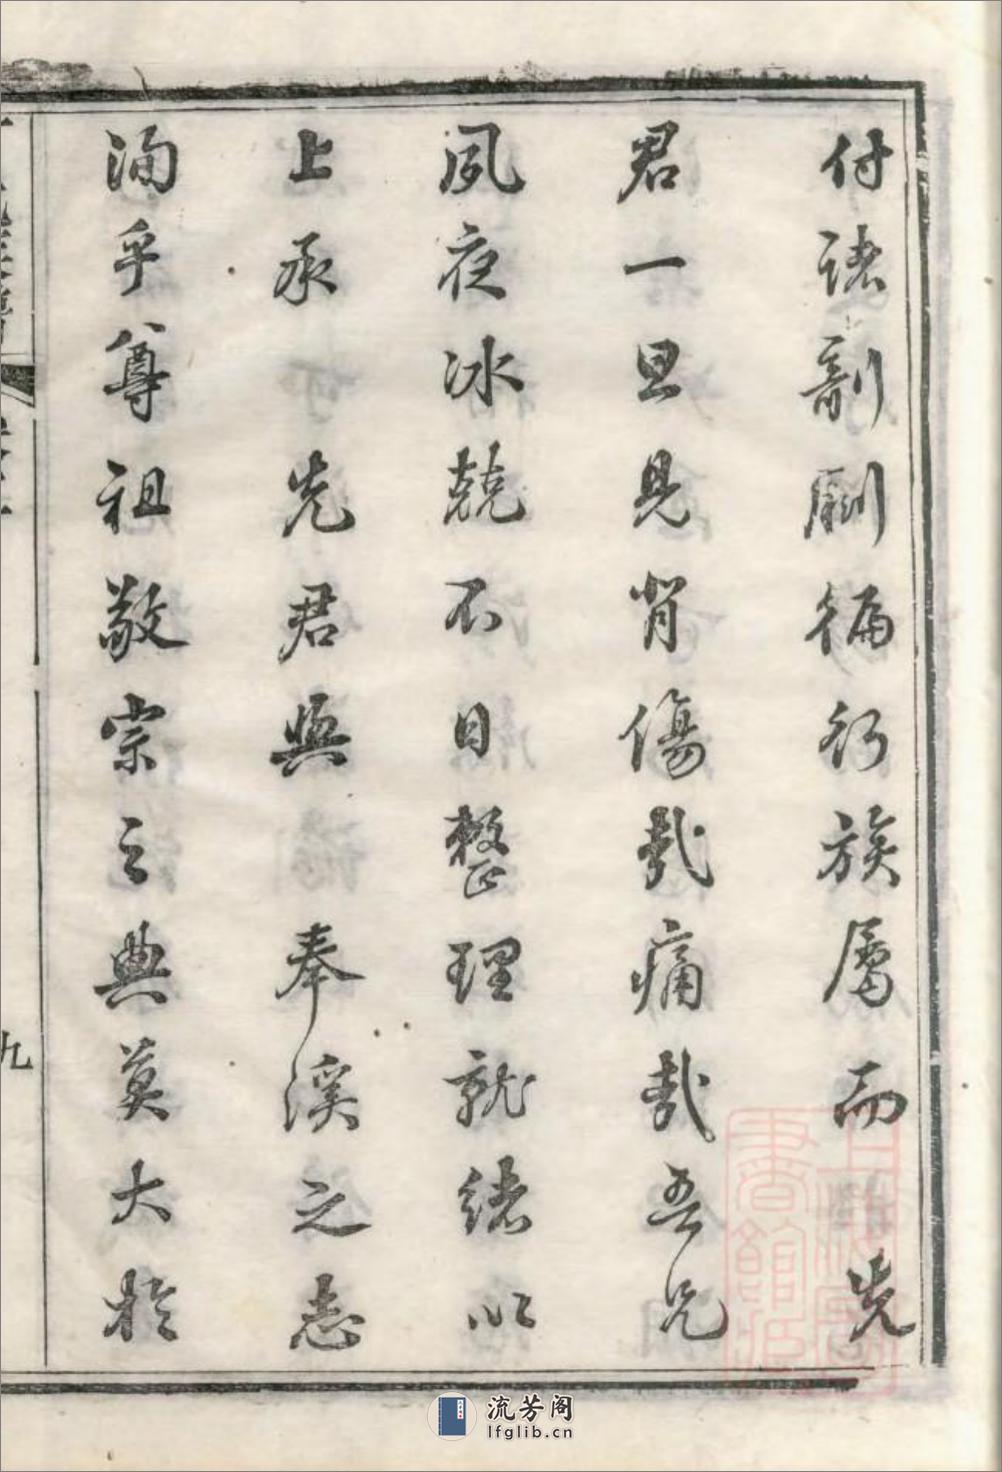 付諸剞劂徧行族屬而先
君一旦見背傷哉痛哉吾兄
夙夜冰兢不日整理就緒以
上承先君與奉溪之志
洵乎尊祖敬宗之典莫大於
九
流芳阁
lfglib.cn